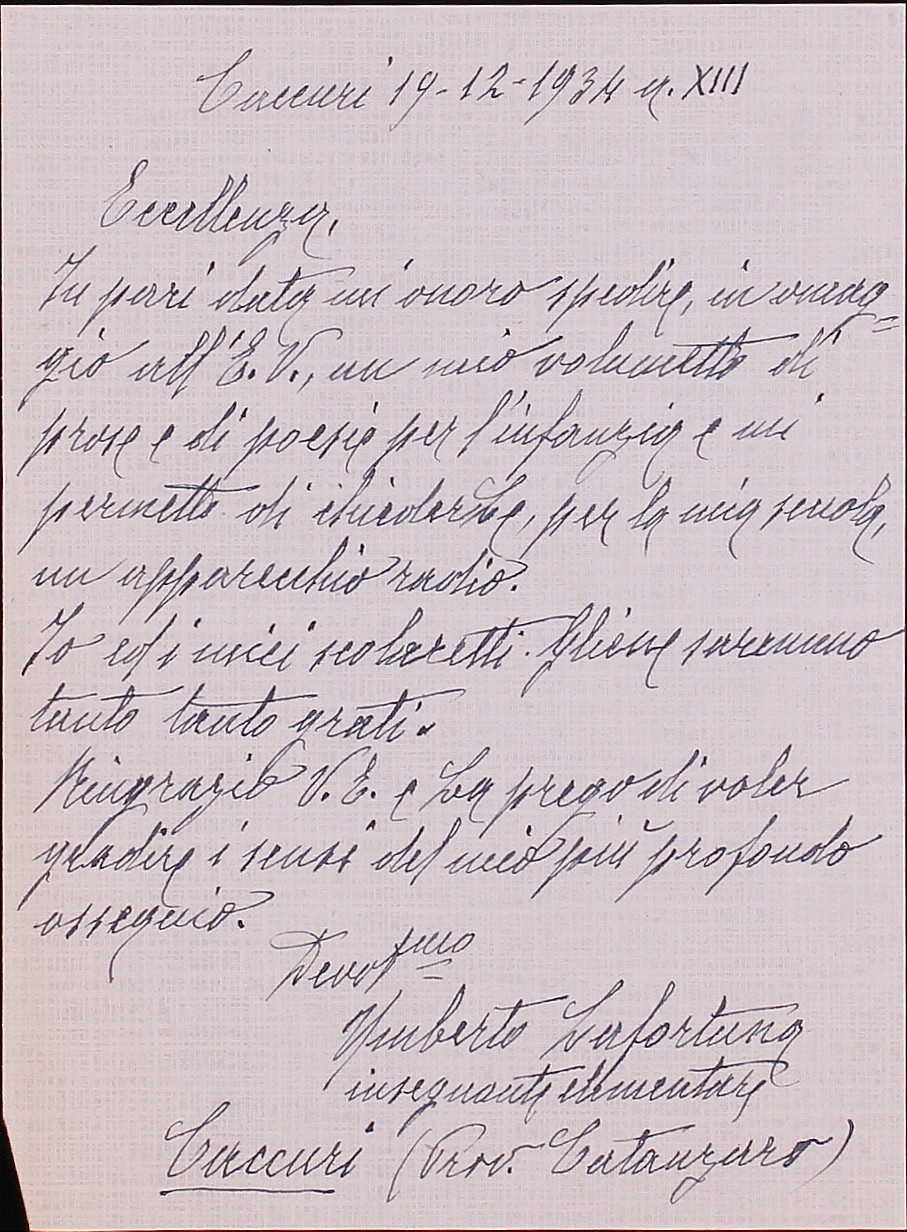 Caccuri 19-12-1934 a. XIII
Eccellenza,
In pari data mi onoro spedire, in omag=
gio all'E. V., un mio volumetto di
prose e di poesie per l'infanzia e mi
permetto di chiederLe, per la mia scuola,
un apparecchio radio.
Io ed i miei scolaretti Gliene saremmo
tanto tanto grati.
Ringrazio V. E. e La prego di voler
gradire i sensi del mio più profondo
ossequio.
Devotmo
Umberto Lafortuna
insegnante elementare
Caccuri (Prov. Catanzaro)